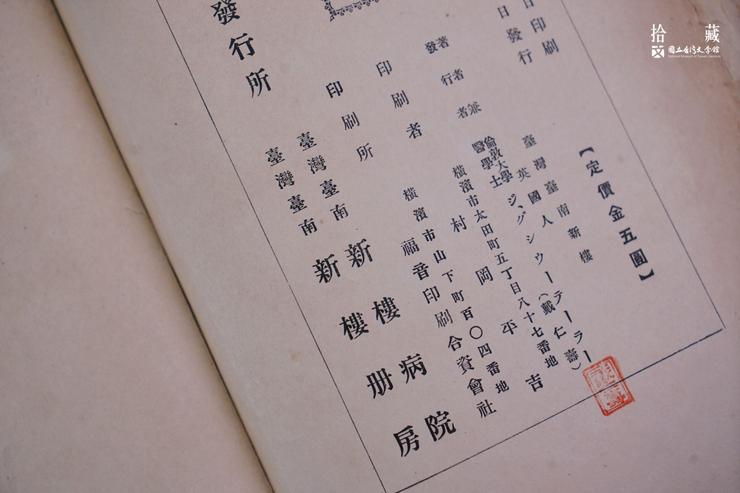 拾藏
國立台灣文學館
National Museum of Taiwan Literature
【定價金五圓】
日印刷
日發行
臺灣臺南新樓
英國人
著者兼
倫敦大學
醫學士
ジ、グシウーテーラー(戴仁壽)
發行者
橫濱市太田町五丁目八十七番地
印刷者
村岡平吉
橫濱市山下町百〇四番地
印刷所
福音印刷合資會社
臺灣臺南
新樓病院
發行所
臺灣臺南
新樓册房